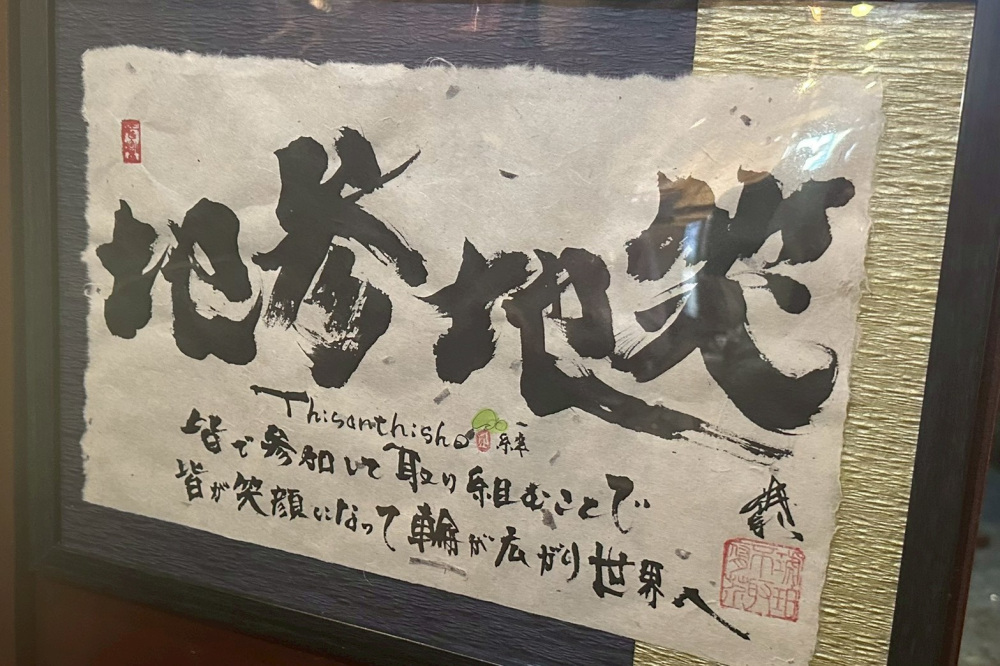 地参地笑
Thisanthisho
皆で参加して取り組むことで
皆が笑顔になって輪が広がり世界へ